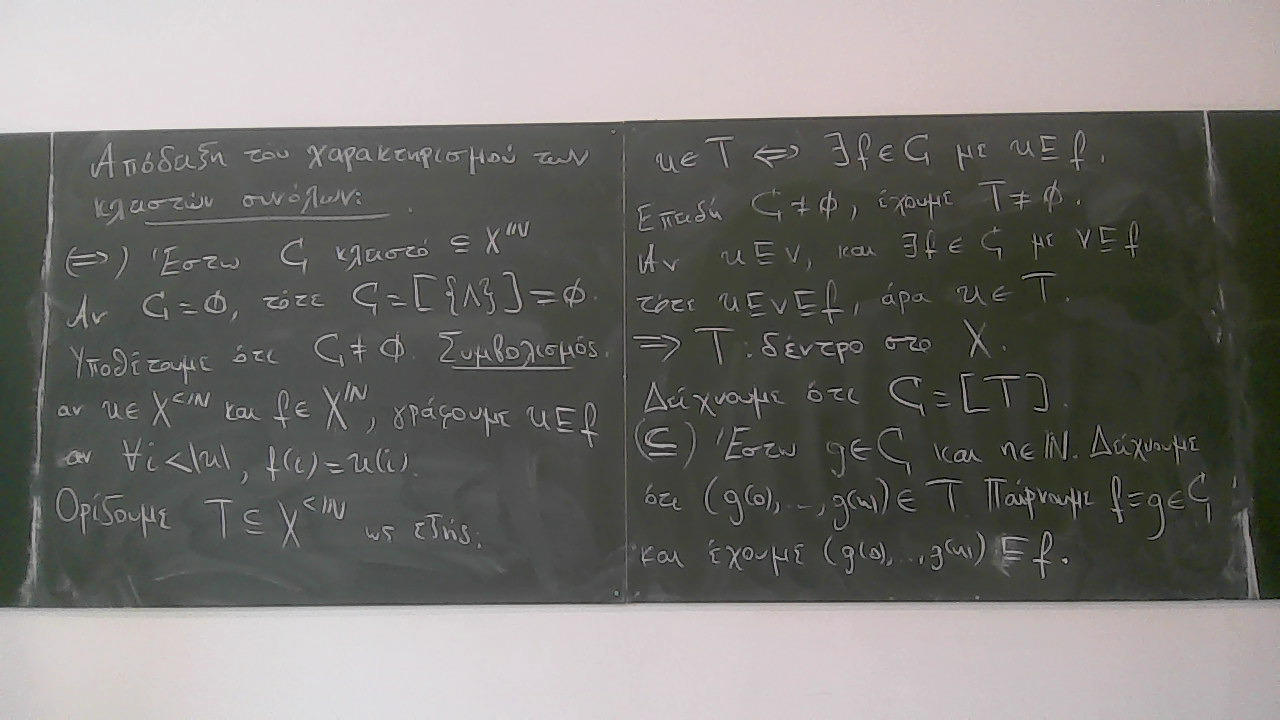 Απόδειξη του χαρακτηρισμού των
κλειστών συνόλων:
(⇒) Έστω C κλειστό ⊆ X^ℕ
Αν C = ∅, τότε C = [{Λ}] = ∅.
Υποθέτουμε ότι C ≠ ∅. Συμβολισμός.
αν u ∈ X^{<ℕ} και f ∈ X^ℕ, γράφουμε u ⊑ f
αν ∀i < |u|, f(i) = u(i).
Ορίζουμε T ⊆ X^{<ℕ} ως εξής:
u ∈ T ⇔ ∃f ∈ C με u ⊑ f.
Επειδή C ≠ ∅, έχουμε T ≠ ∅.
Αν u ⊑ v, και ∃f ∈ C με v ⊑ f
τότε u ⊑ v ⊑ f, άρα u ∈ T.
⇒ T : δέντρο στο X.
Δείχνουμε ότι C = [T].
(⊆) Έστω g ∈ C και n ∈ ℕ. Δείχνουμε
ότι (g(0), ..., g(n)) ∈ T. Παίρνουμε f = g ∈ C
και έχουμε (g(0), ..., g(n)) ⊑ f.